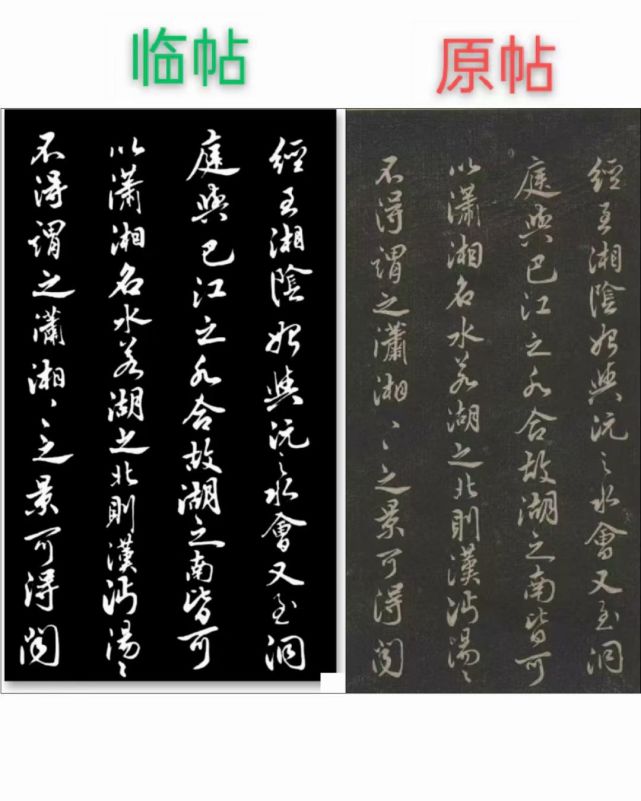 临帖
原帖
經至湘陰始與沅之水會又至洞
庭與巴江之水合故湖之南皆可
以瀟湘名水若湖之北則漢沔湯〻
不得謂之瀟湘〻〻之景可得聞
經至湘陰始與沅之水會又至洞
庭與巴江之水合故湖之南皆可
以瀟湘名水若湖之北則漢沔湯〻
不得謂之瀟湘〻〻之景可得聞